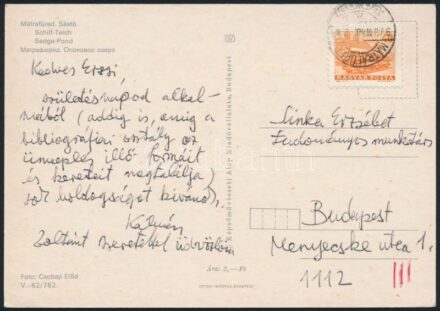 Mátrafüred. Sástó
Schilf-Teich
Sedge-Pond
Матрафюред. Осоковое озеро
Kedves Erzsi
születésnapod alkal-
mából (addig is, amig a
bibliográfiai osztály az
ünneplés illő formáit
és kereteit megtalálja)
sok boldogságot kívánok
Kálmán
Zoltánt szeretettel üdvözlöm
Foto: Csobaji Előd
V.-62/782.
Képzőművészeti Alap Kiadóvállalata, Budapest
Ára: 2,— Ft
MAGYAR POSTA
Sinka Erzsébet
tudományos munkatárs
Budapest
Menyecske utca 1.
1112
III